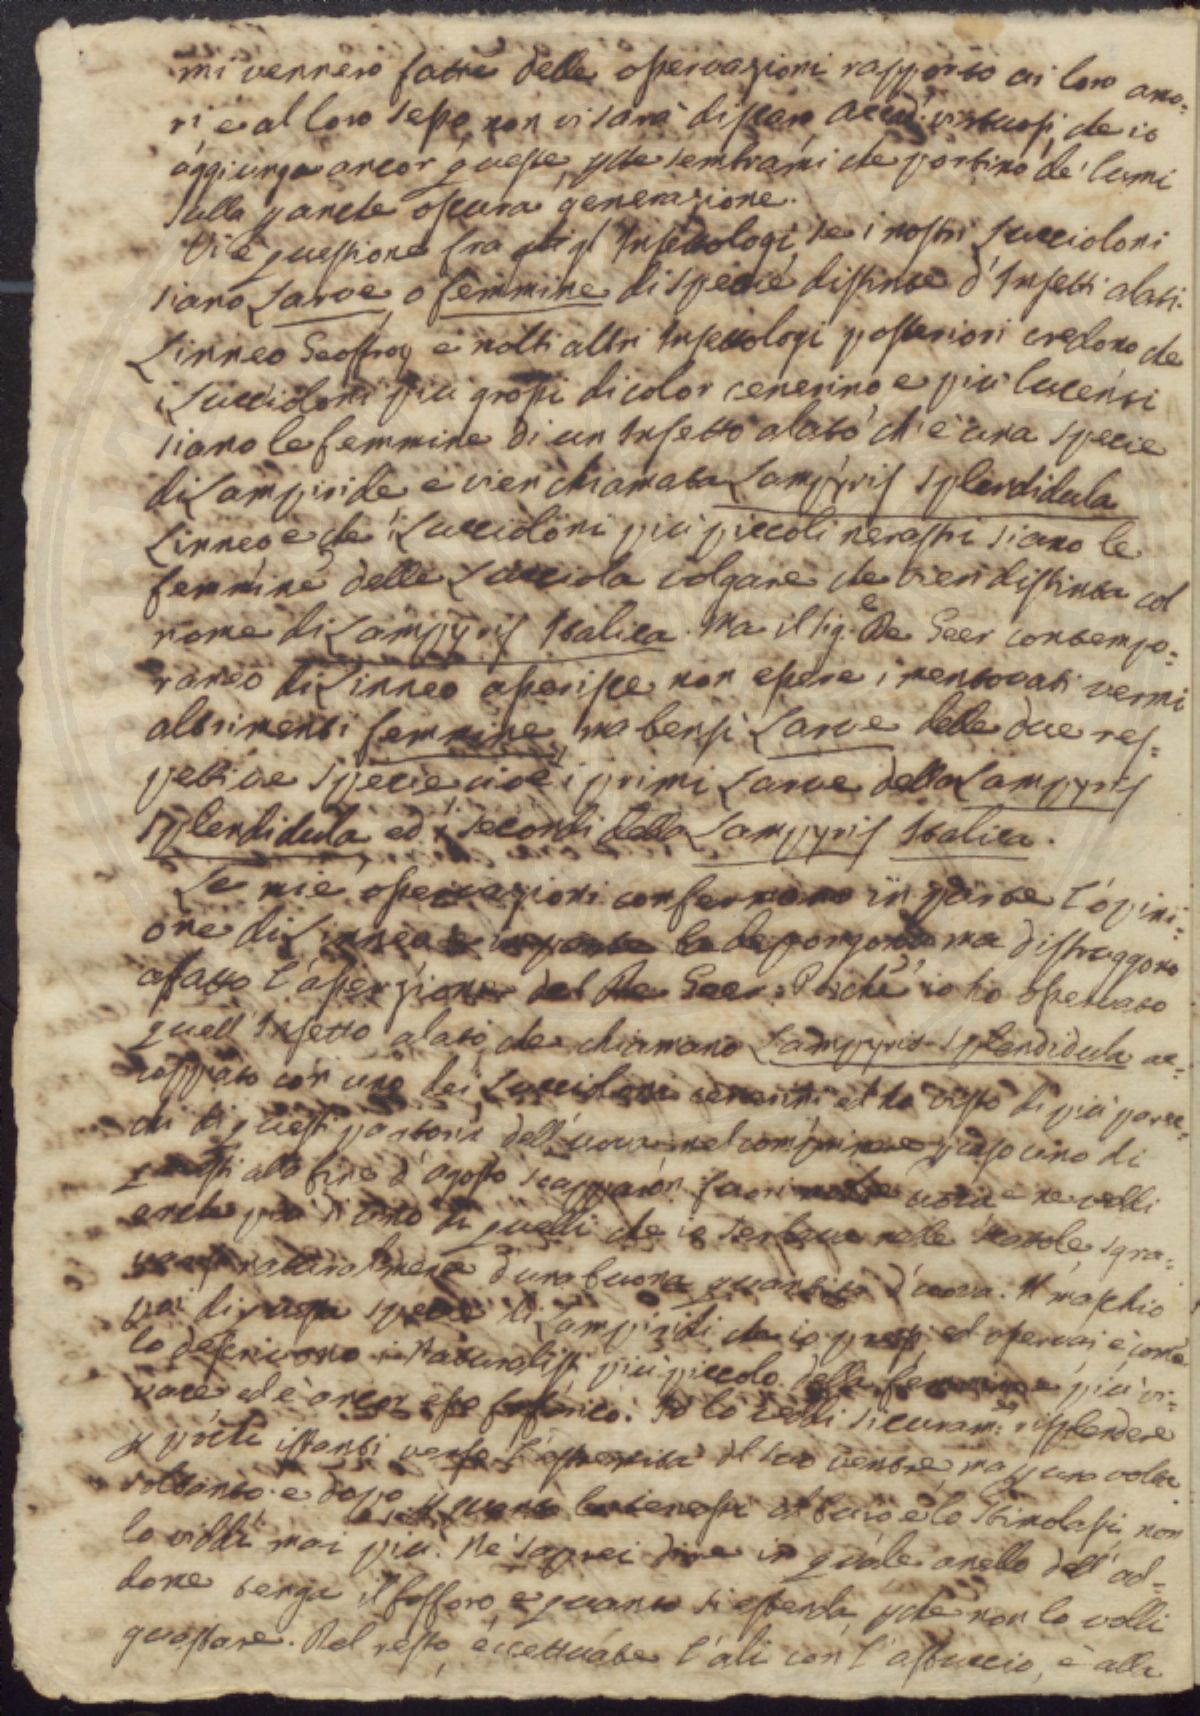 mi vennero fatte delle osservazioni rapporto ai loro amo=
ri e al loro sesso, non vi sarà discaro Accad. virtuosi, che io
aggiunga ancor queste, pche sembrami che portino de' lumi
sulla parte oscura generazione.
Vi è questione fra gl' Insettologi, se i nostri Luccioloni
siano Larve o femmine di specie distinte d'Insetti alati.
Linneo Geoffroy e molti altri Insettologi posteriori credono che
i Luccioloni più grossi di color cenerino e più lucenti
siano le femmine di un Insetto alato ch'è una specie
di Lampiride e vien chiamata Lampyris splendidula
Linneo e che i Luccioloni più piccoli nerastri siano le
femmine delle Lucciola volgare che vien distinta col
nome di Lampyris Italica. Ma il Sig.e De Geer contempo=
raneo di Linneo asserisce non essere i mentovati vermi
altrimenti femmine, ma bensì Larve delle due res=
pettive specie cioè i primi Larve della Lampyris
splendidula ed i secondi della Lampyris Italica.
Le mie osservazioni confermano in parte l'opini=
one di Linneo ma distruggono
afatto l'asserzione del De Geer. Poichè io ho osservato
quell'Insetto alato, che chiamano Lampyris splendidula ac=
coppiato con uno dei Luccioloni cenerini ed ho visto di più parec=
chi di questi partorir dell'uova nel comprimere uno di
questi alla fine d'agosto scapparon fuori molte uova e ne vidi
anche più di uno di quelli che io serbava nelle scatole, sgra=
varsi naturalmente d'una buona quantità d'uova. Il maschio
poi di questa specie di Lampiridi che io presi ed osservai è come
lo descrivono i Naturalisti più piccolo della femmina, più vi=
vace ed è ancor esso fosforico. Io lo vidi sicuram.e risplendere
p pochi istanti verso l'estremità del suo ventre, ma p una volta
soltanto e dopo quanto lo tenessi al buio e lo stimolassi non
lo viddi mai più. Nè saprei dire in quale anello dell'ad=
dome tenga il fosforo e quanto si estenda, pchè non lo volli
guastare. Del resto, eccettuate l'ali con l'astuccio, è alla